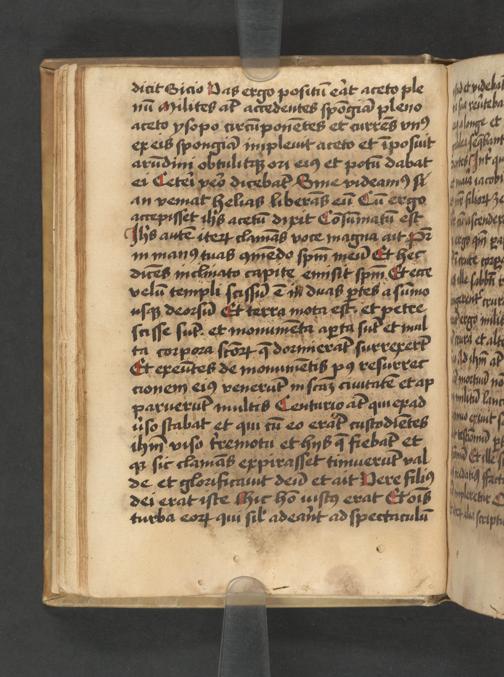 dicit Sicio Vas ergo positū erāt aceto ple
nū Milites aūt accedentes spōgiā pleno
aceto ysopo circūponētes et currēs vnꝰ
ex eis spongiā impleuit aceto et īposuit
arūdini obtulitqꝫ ori eiꝰ et potū dabat
ei Ceteri vero dicebāt Sine videamꝰ si
an veniat helias liberās eū Cū ergo
accepisset ihs acetū dixit Cōsūmatū est
Ihs autē iterū clamās voce magna ait Pr̄
in manꝰ tuas cōmēdo spm̄ meū Et hec
dicēs inclinato capite emisit spm̄ Et ecce
velū templi scissū ē in duas ptes a sūmo
usqꝫ deorsū Et terra mota est et petre
scisse sūt et monumēta apta sūt et mul
ta corpora sctōꝝ q̄ dormierāt surrexerūt
Et exeūtes de monumētis pꝰ resurrec
tionem eiꝰ venerūt in scāꝫ ciuitatē et ap
paruerūt multis Centurio aūt qui exad
uso stabat et qui cū eo erāt custodiētes
ihm̄ viso tremotu et hijs q̄ fiebāt et
qꝫ sic clamās expirasset timuerūt val
de et glorificauit deū et ait Vere filiꝰ
dei erat iste Hic hō iustꝰ erat Et oīs
turba eoꝝ qui sil' aderāt ad spectaculū